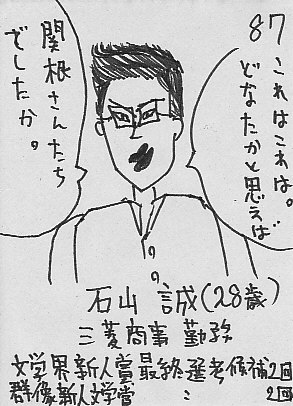 87
これはこれは。
どなたかと思えば
関根さんたち
でしたか。
石山 誠(28歳)
三菱商事 勤務
文学界新人賞最終選考候補2回
群像新人文学賞 〃 2回